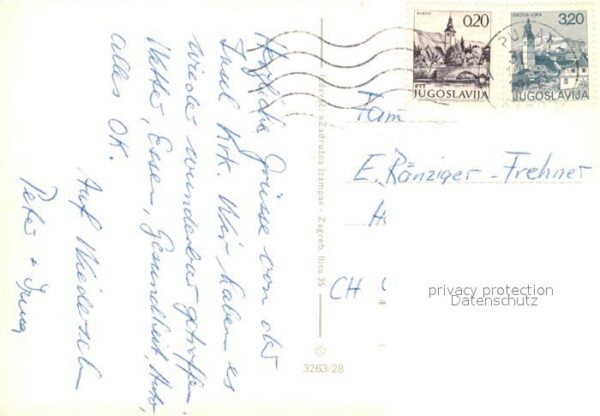 Herzliche Grüsse von der
Insel Krk. Wir haben es
wieder wunderbar getroffen.
Wetter, Essen, Gesundheit, Auto,
alles OK.
Auf Wiedersehn
Peter + Irma
Zadružna štampa« - Zagreb, Ilica 35
3263/28
0.20
PTT
JUGOSLAVIJA
ŠKOFJA LOKA
3,20
JUGOSLAVIJA
Fam
E. Ränziger-Frehner
CH
privacy protection
Datenschutz